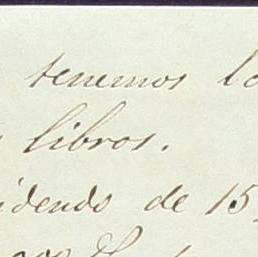 tenemos lo
libros.
idendo de 15